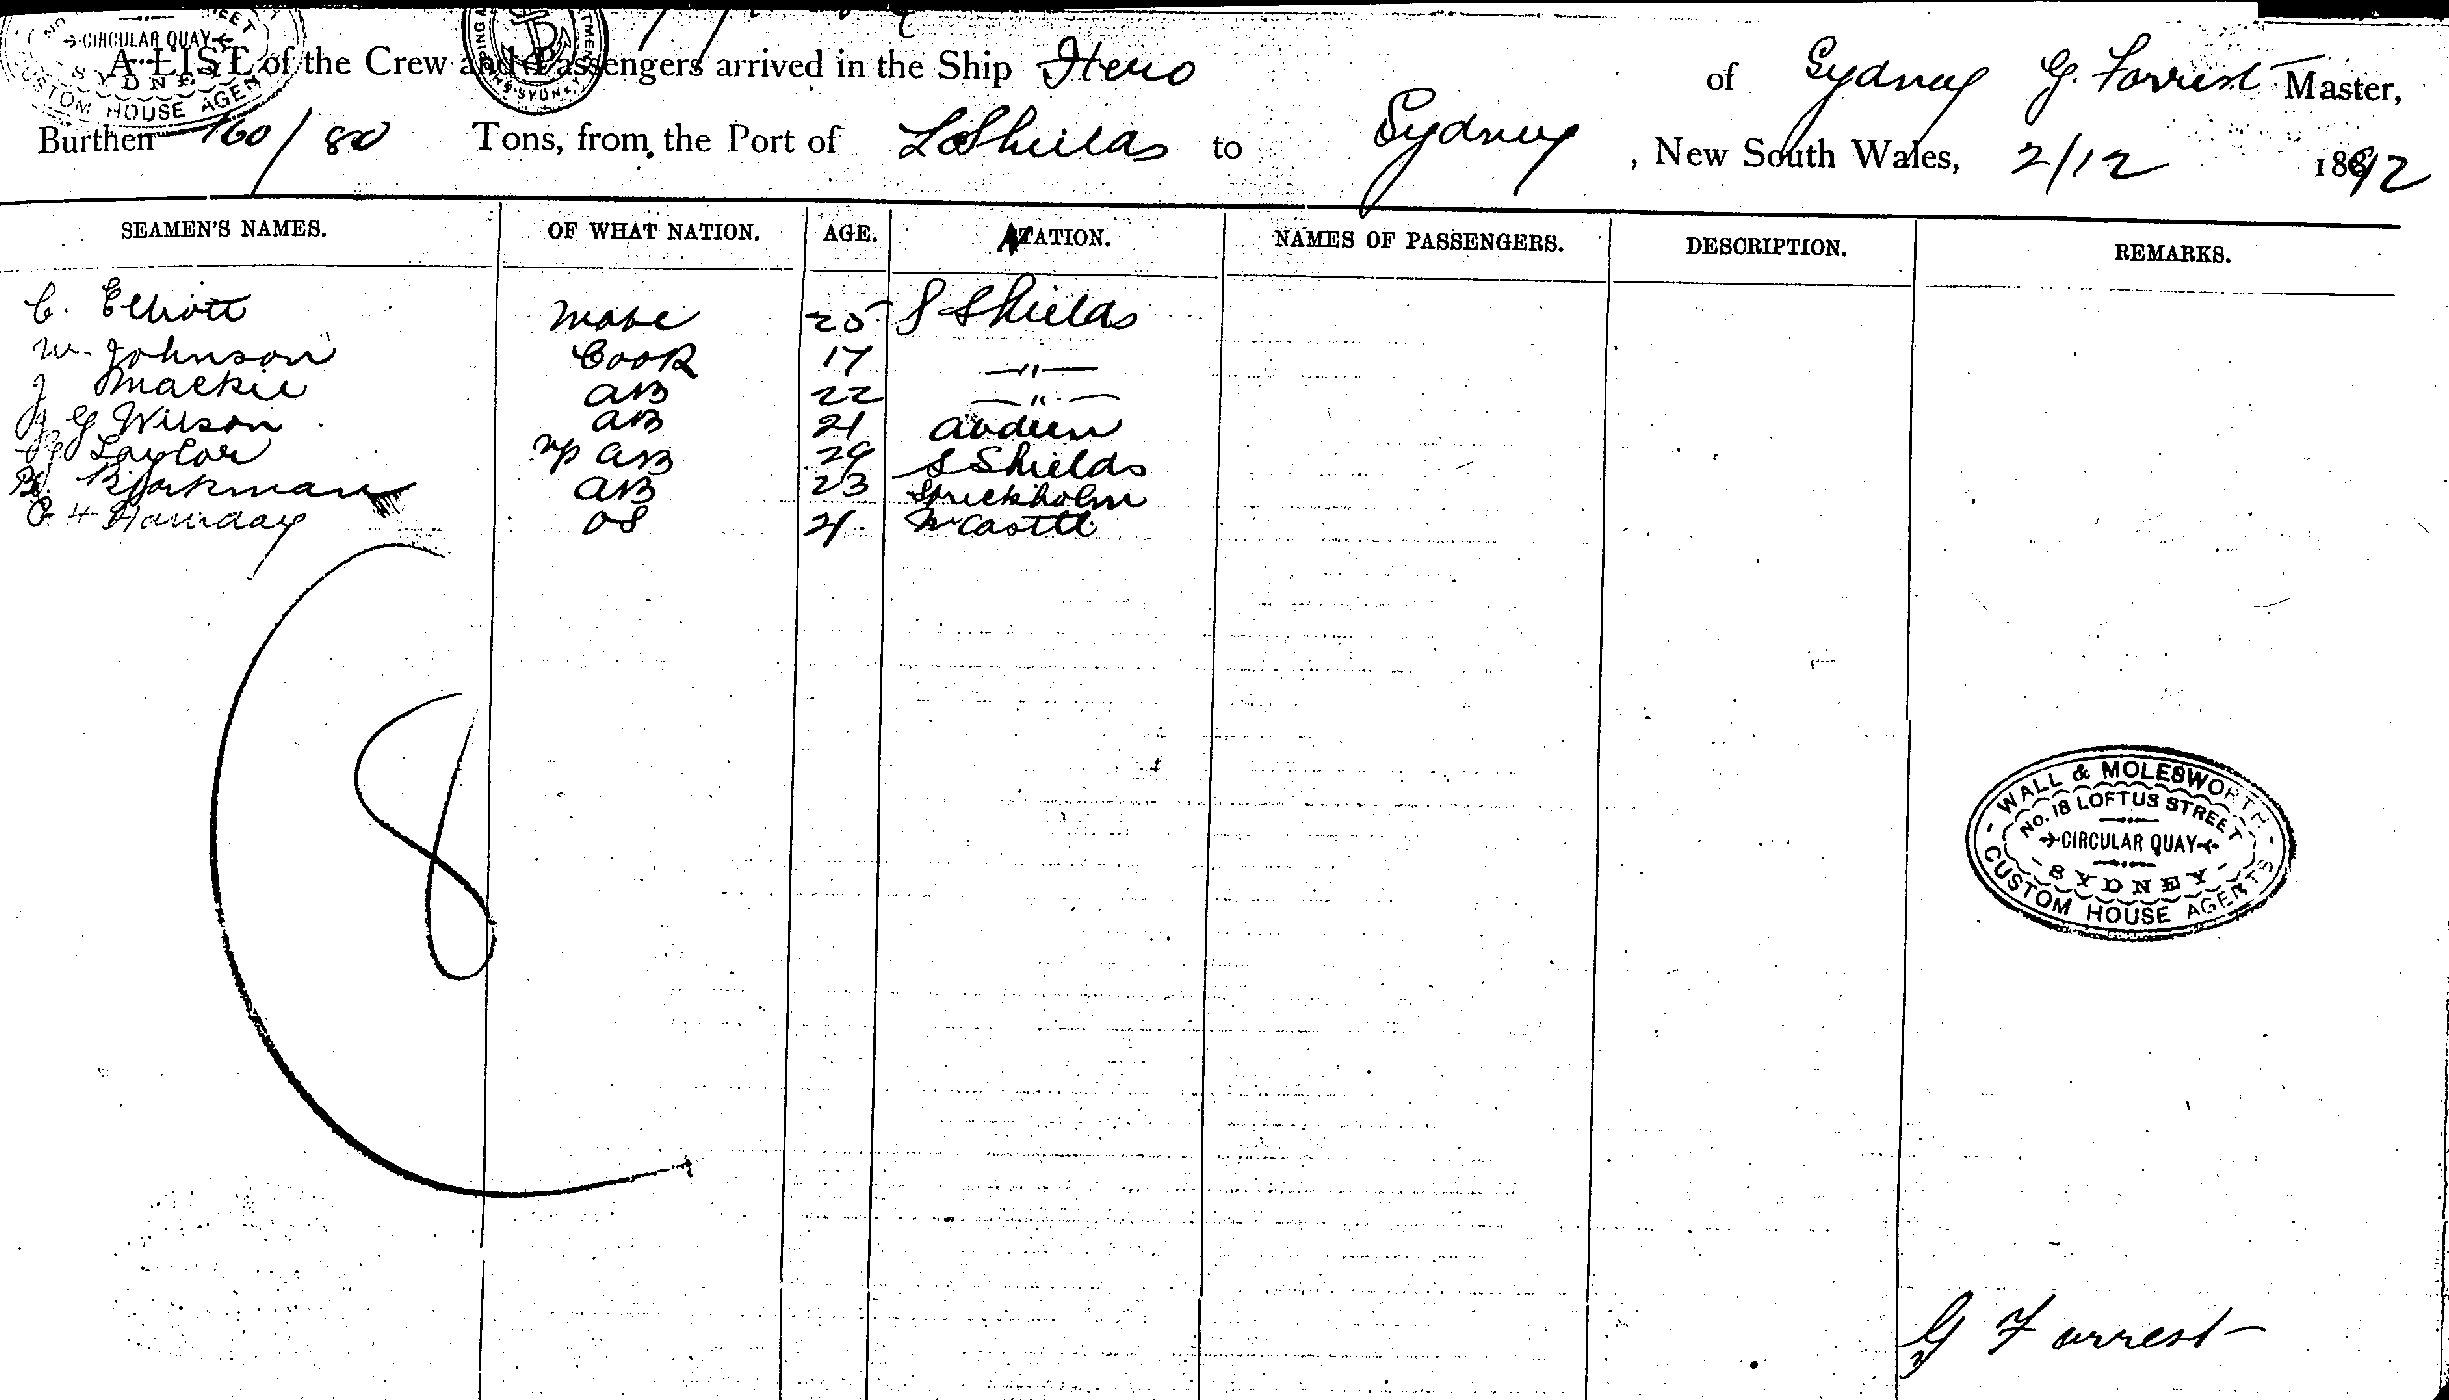 A LIST of the Crew and Passengers arrived in the Ship Hero of Sydney G. Forrest Master,
Burthen 160/80 Tons, from the Port of Shields to Sydney, New South Wales, 2/12 1892
SEAMEN'S NAMES. OF WHAT NATION. AGE. STATION. NAMES OF PASSENGERS. DESCRIPTION. REMARKS.
C. Elliott Mate 25 S Shields
W. Johnson Cook 17 — " —
J Mackie AB 22 — " —
J G Wilson AB 21
Taylor AB 29 S Shields
Bjorkman AB 23
C H OS 21 N Castle
8
WALL & MOLESWORTH
No. 18 LOFTUS STREET
CIRCULAR QUAY
SYDNEY
CUSTOM HOUSE AGENTS
G Forrest
CIRCULAR QUAY
SYDNEY
CUSTOM HOUSE AGENTS